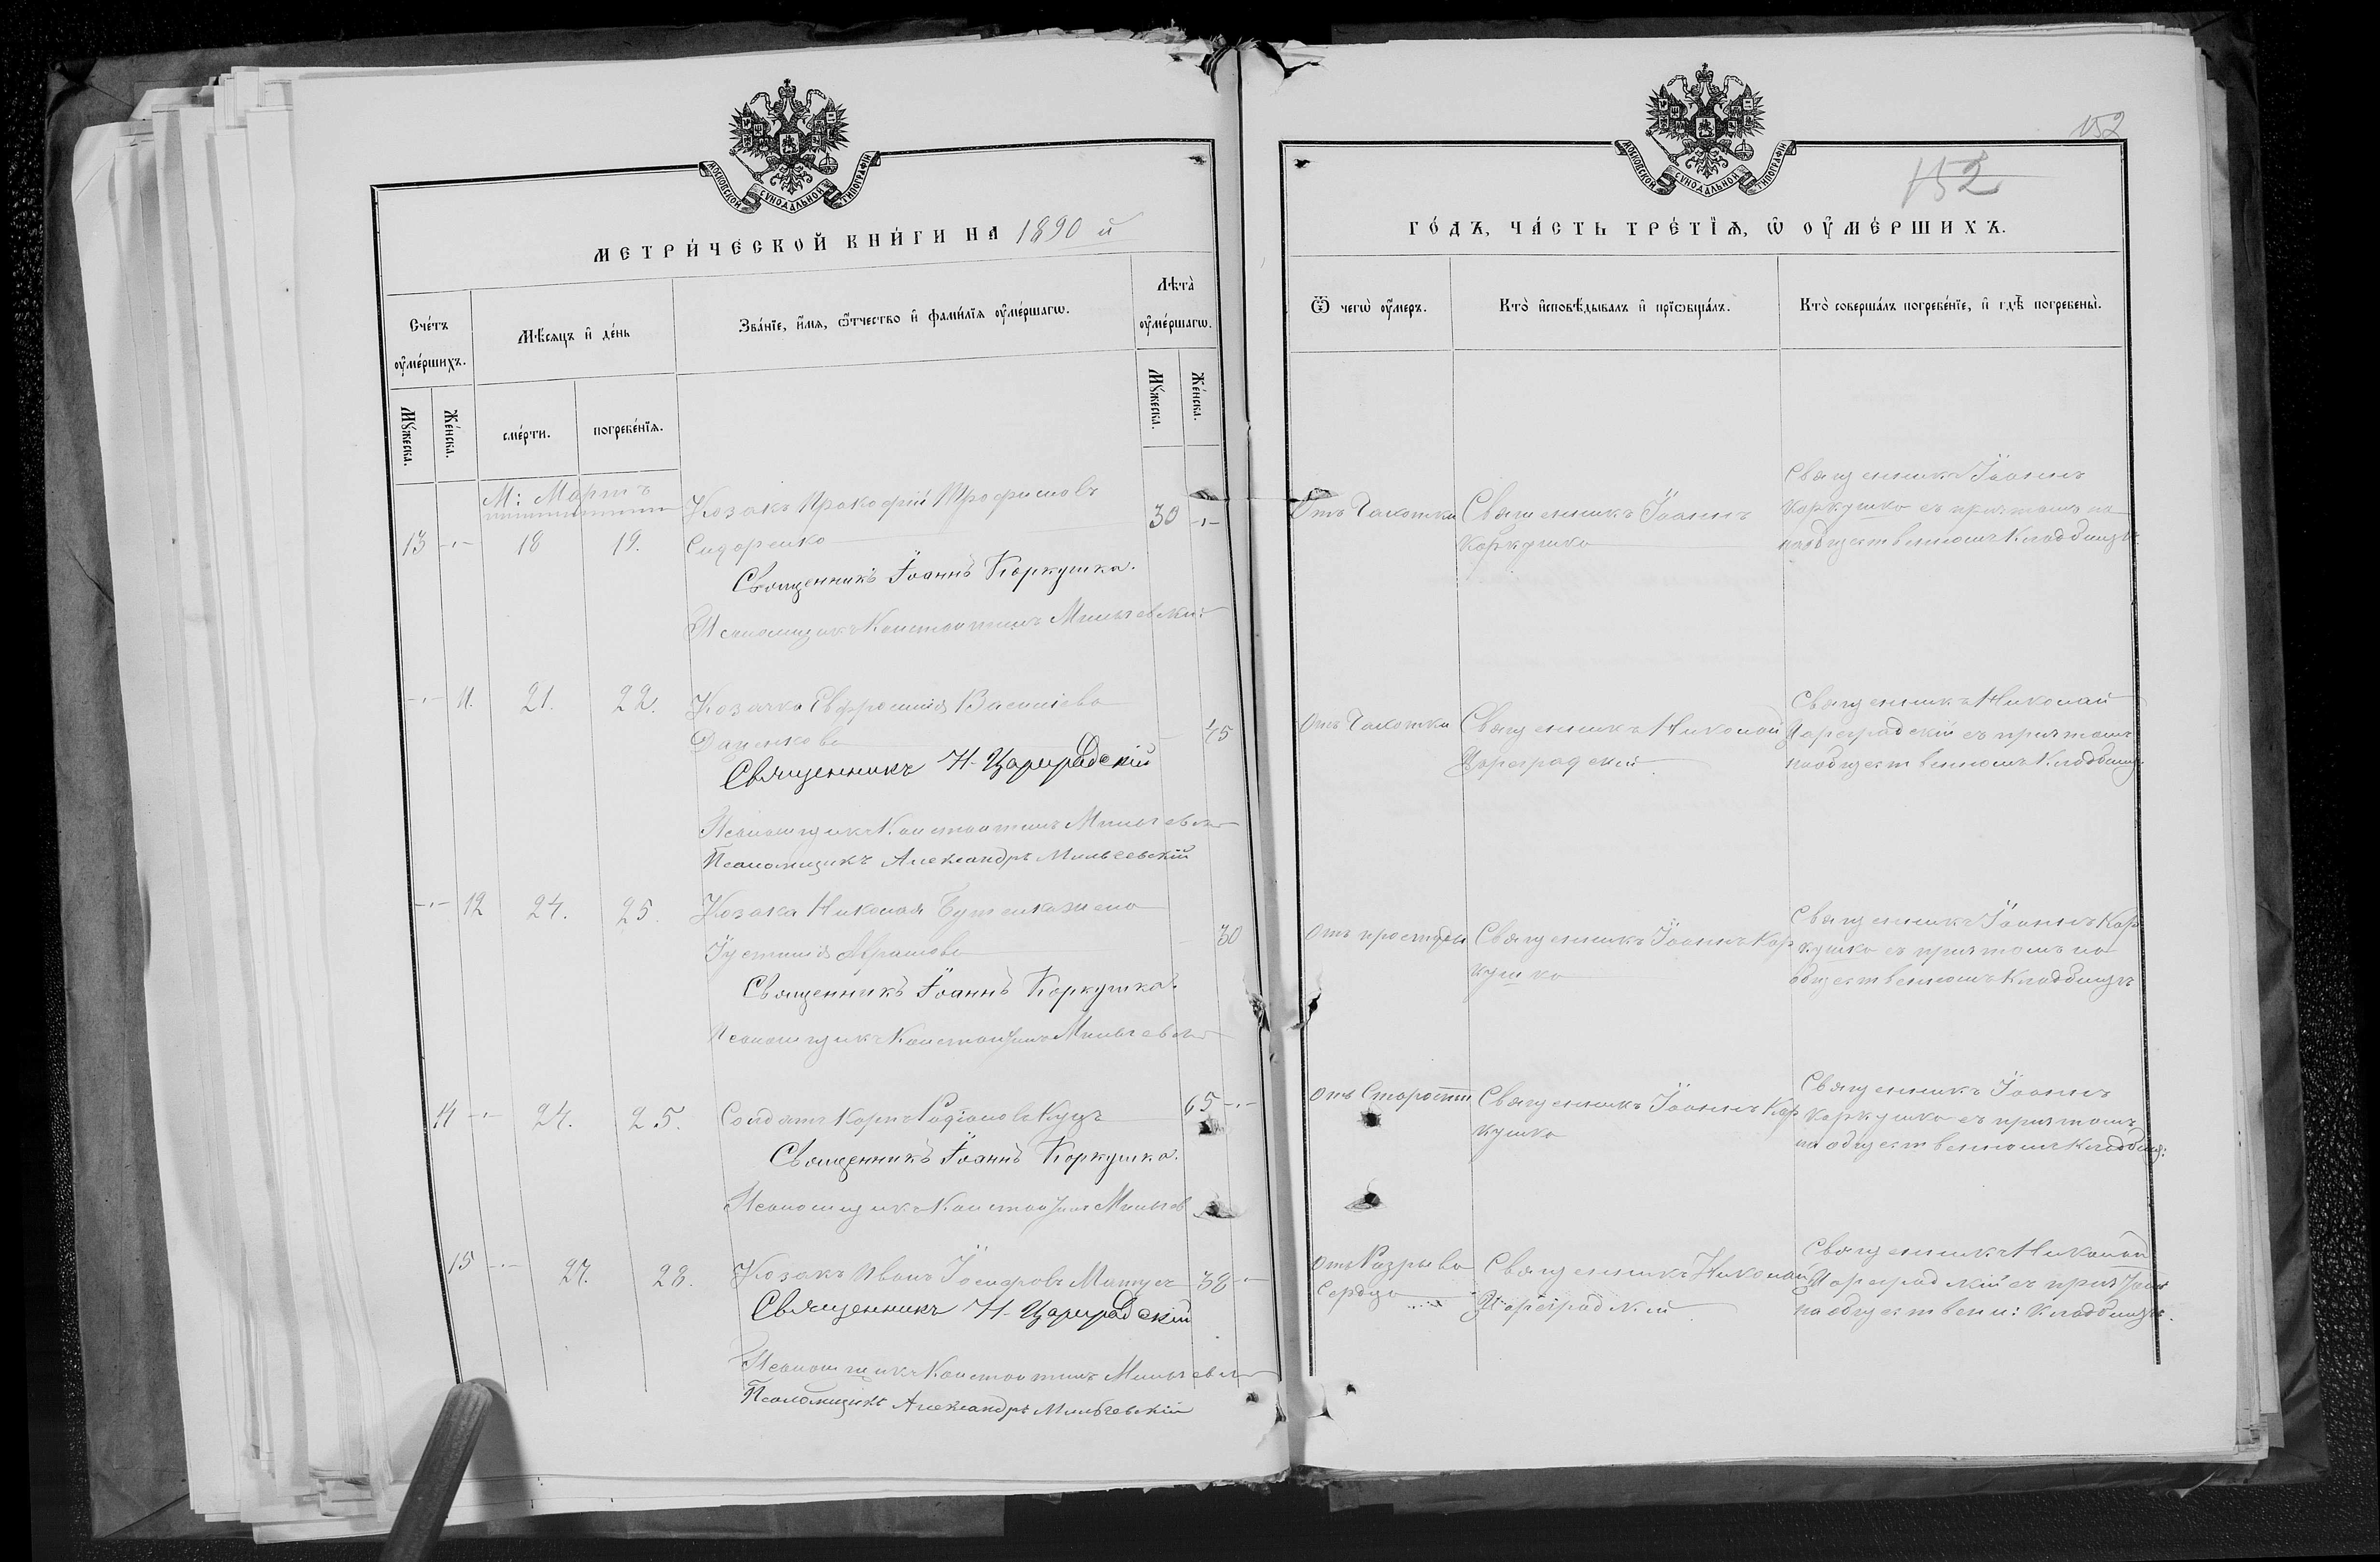 МОСКОВСКОЙ СѴНОДАЛЬНОЙ ТИПОГРАФІИ
МЕТРИ́ЧЕСКОЙ КНИ́ГИ НА 1890 й
Сче́тъ ᲂу҆ме́ршихъ.
Мѣ́сяцъ и҆ де́нь
Зва́нїе, и҆́мѧ, ѻ҆́тчество и҆ фами́лїѧ ᲂу҆ме́ршагѡ.
Лѣта̀ ᲂу҆ме́ршагѡ.
Мꙋ́жеска.
Же́нска.
сме́рти.
погребе́нїѧ.
Мꙋ́жеска.
Же́нска.
М: Мартъ
13 -"- 18 19. Козакъ Прокофій Трофимовъ 30 -"-
Сидоренко
Священникъ Іоаннъ Коркушка.
Псаломщикъ Константинъ Мильчевскій
-"- 11. 21. 22. Козачка Евфросинія Василіева 45
Даценкова
Священникъ Н. Цареградскій
Псаломщикъ Константинъ Мильчевск
Псаломщикъ Александръ Мильчевскій
-"- 12 24. 25. Козака Николая Бутенка жена 30
Іустинія Абрамова
Священникъ Іоаннъ Коркушка.
Псаломщикъ Константинъ Мильчевск
14 -"- 24. 25. Солдатъ Карпъ Родіоновъ Куцъ 65 -"-
Священникъ Іоаннъ Коркушка.
Псаломщикъ Константинъ Мильчев
15 -"- 27. 28. Козакъ Иванъ Іосифовъ Матусъ 38 -"-
Священникъ Н. Цареградскій
Псаломщикъ Константинъ Мильчевск
Псаломщикъ Александръ Мильчевскій
152
152
МОСКОВСКОЙ СѴНОДАЛЬНОЙ ТИПОГРАФІИ
ГО́ДЪ, ЧА́СТЬ ТРЕ́ТЇѦ, Ѡ҆ ОУ҆МЕ́РШИХЪ.
Ѿ чегѡ̀ ᲂу҆́меръ.
Кто̀ и҆сповѣ́дывалъ и҆ прїѡбща́лъ.
Кто̀ соверша́лъ погребе́нїе, и҆ гдѣ̀ погребены̀.
Отъ Чахотки
Священникъ Іоаннъ
Коркушка
Священникъ Іоаннъ
Коркушка съ причтомъ на
на общественномъ Кладбищѣ.
Отъ Чахотки
Священникъ Николай
Цареградскій
Священникъ Николай
Цареградскій съ причтомъ
на общественномъ Кладбищ.
Отъ простуды
Священникъ Іоаннъ Кор
кушка
Священникъ Іоаннъ Кор
кушка съ причтомъ на
общественномъ Кладбищѣ
Отъ Старости
Священникъ Іоаннъ Кор
кушка
Священникъ Іоаннъ
Коркушка съ причтомъ
на общественномъ Кладбищ:
Отъ Разрыва
Сердца
Священникъ Николай
Цареградскій
Священникъ Николай
Цареградскій съ причтомъ
на обществен: Кладбищѣ.